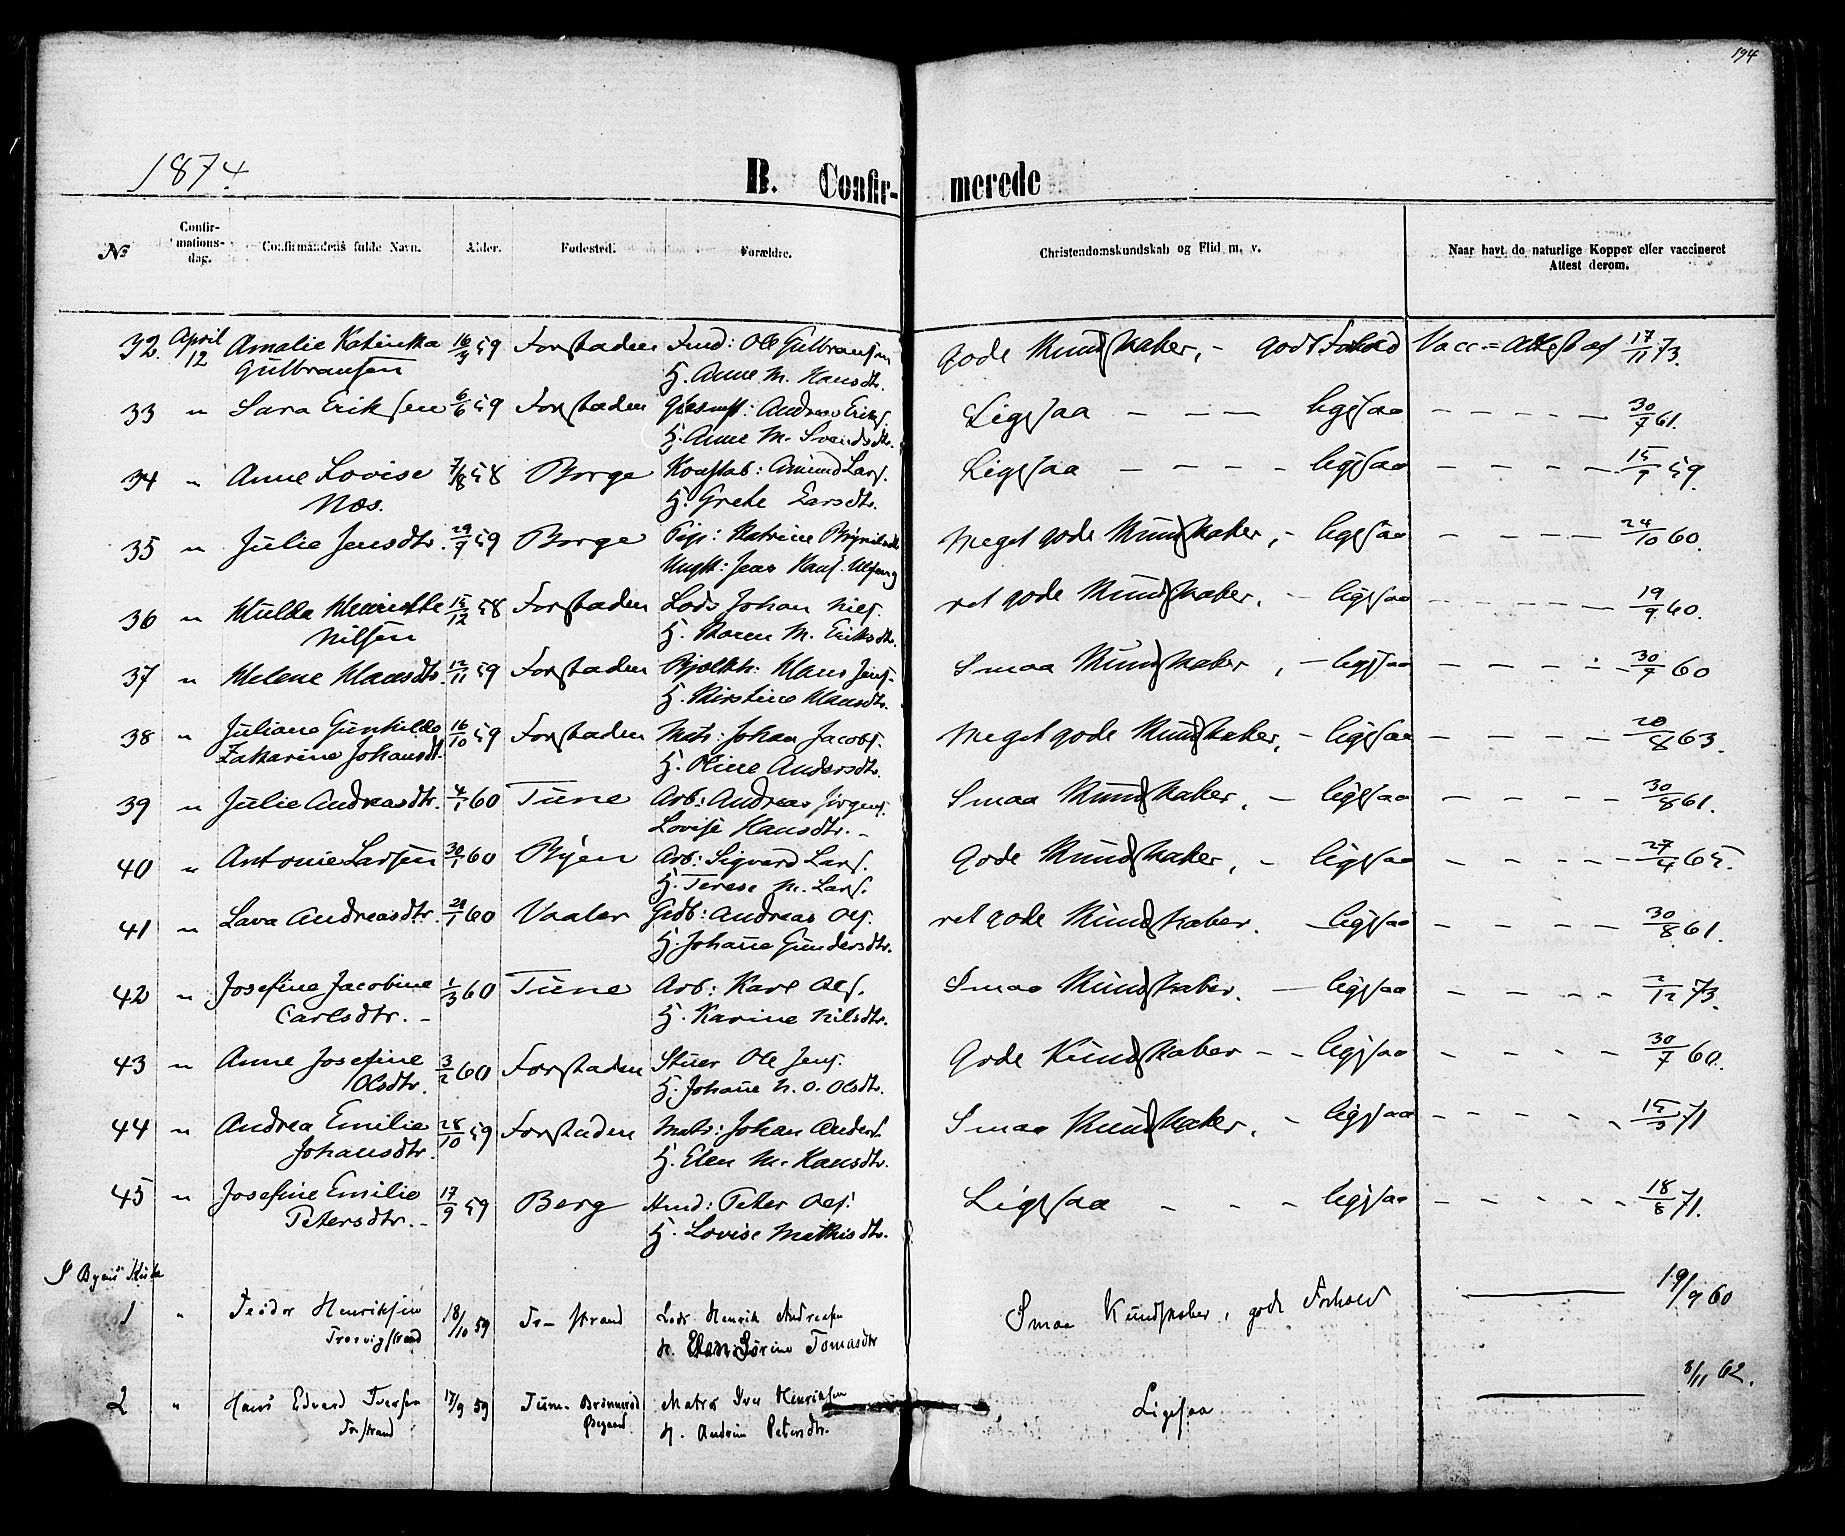 194
1874.
B. Confir- merede
No
Confir-
mations-
dag.
Confirmandens fulde Navn.
Alder.
Fødested.
Forældre.
Christendomskundskab og Flid m. v.
Naar havt de naturlige Kopper eller vaccineret
Attest derom.
32. April 12 Amalie Katinka 16/4 59 Forstaden Ole Gulbransen Gode Kundskaber, - godt Forhold Vacc = Attest af 17/11 73.
Gulbransen H. Anne M. Hansdtr.
33 " Sara Eriksen 6/6 59 Forstaden Andreas Eriks. Ligesaa - - - ligesaa - - - - - 30/7 61.
H. Anne M. Svendsdtr.
34 " Anne Lovise 7/8 58 Borge Konstab: Amund Lars. Ligesaa - - - - ligesaa - - - - - 15/9 59.
Næs. H. Grethe Larsdtr.
35 " Julie Jensdtr. 29/9 59 Borge Pige: Katrine Meget gode Kundskaber, - ligesaa - - - - 24/10 60.
Ungk: Jens Hans.
36 " Hulda Henriette 15/12 58 Forstaden Lods Johan Niels. ret gode Kundskaber, - ligesaa - - - - - 19/9 60.
Nilsen H. Karen M. Eriksdtr.
37 " Helene Hansdtr. 12/11 59 Forstaden Hans Jens. Smaa Kundskaber, - ligesaa - - - - - 30/9 60
H. Kirstine Hansdtr.
38 " Juliane Gunhilde 16/10 59 Forstaden Matr: Johan Jacobs. Meget gode Kundskaber, - ligesaa - - - - 20/8 63.
Zakarine Johansdt. H. Oline Andersdtr.
39 " Julie Andreasdtr. 4/1 60 Tune Arb: Andreas Jørgens. Smaa Kundskaber, - ligesaa - - - - 30/8 61.
Lovise Hansdtr. -
40 " Antonie Larsen 30/1 60 Byen Arb: Sigvard Lars. Gode Kundskaber, - ligesaa - - - - - 27/4 65.
H. Terese M. Lars.
41 " Lava Andreasdtr. 21/1 60 Vaaler Grdb: Andreas Ols. ret gode Kundskaber. - ligesaa - - - - 30/8 61.
H. Johane Gundersdtr.
42 " Josefine Jacobine 1/3 60 Tune Arb: Karl Ols. Smaa Kundskaber. - ligesaa - - - - 2/12 73.
Carlsdtr. - H. Karine Nilsdtr.
43 " Anne Josefine 3/2 60 Forstaden Stuer Ole Jens. Gode Kundskaber - - ligesaa - - - - 30/7 60.
Olsdtr. H. Johane N. O. Olsdtr.
44 " Andrea Emilie 28/10 59 Forstaden Matr: Johan Anders. Smaa Kundskaber, - ligesaa - - - - - 15/3 71
Johansdtr. H. Elen M. Hansdtr.
45 " Josefine Emilie 17/9 59 Berg Hmd: Peter Ols. Ligesaa - - - ligesaa - - - - - 18/8 71.
Petersdtr. - H. Lovise Mathisdtr.
I Byens Kirke
1 " Teodor Henriksen 18/10 59 Tr-strand Lods Henrik Andreasen Smaa Kundskaber, godt Forhold 19/9 60
Trosvigstrand H. Elen Sørine Tomasdtr
2 " Hans Edvard Iversen 17/9 59 Tune Matros Iver Henriksen Ligesaa 8/11 62.
Trstrand H. Andrine Petersdtr.